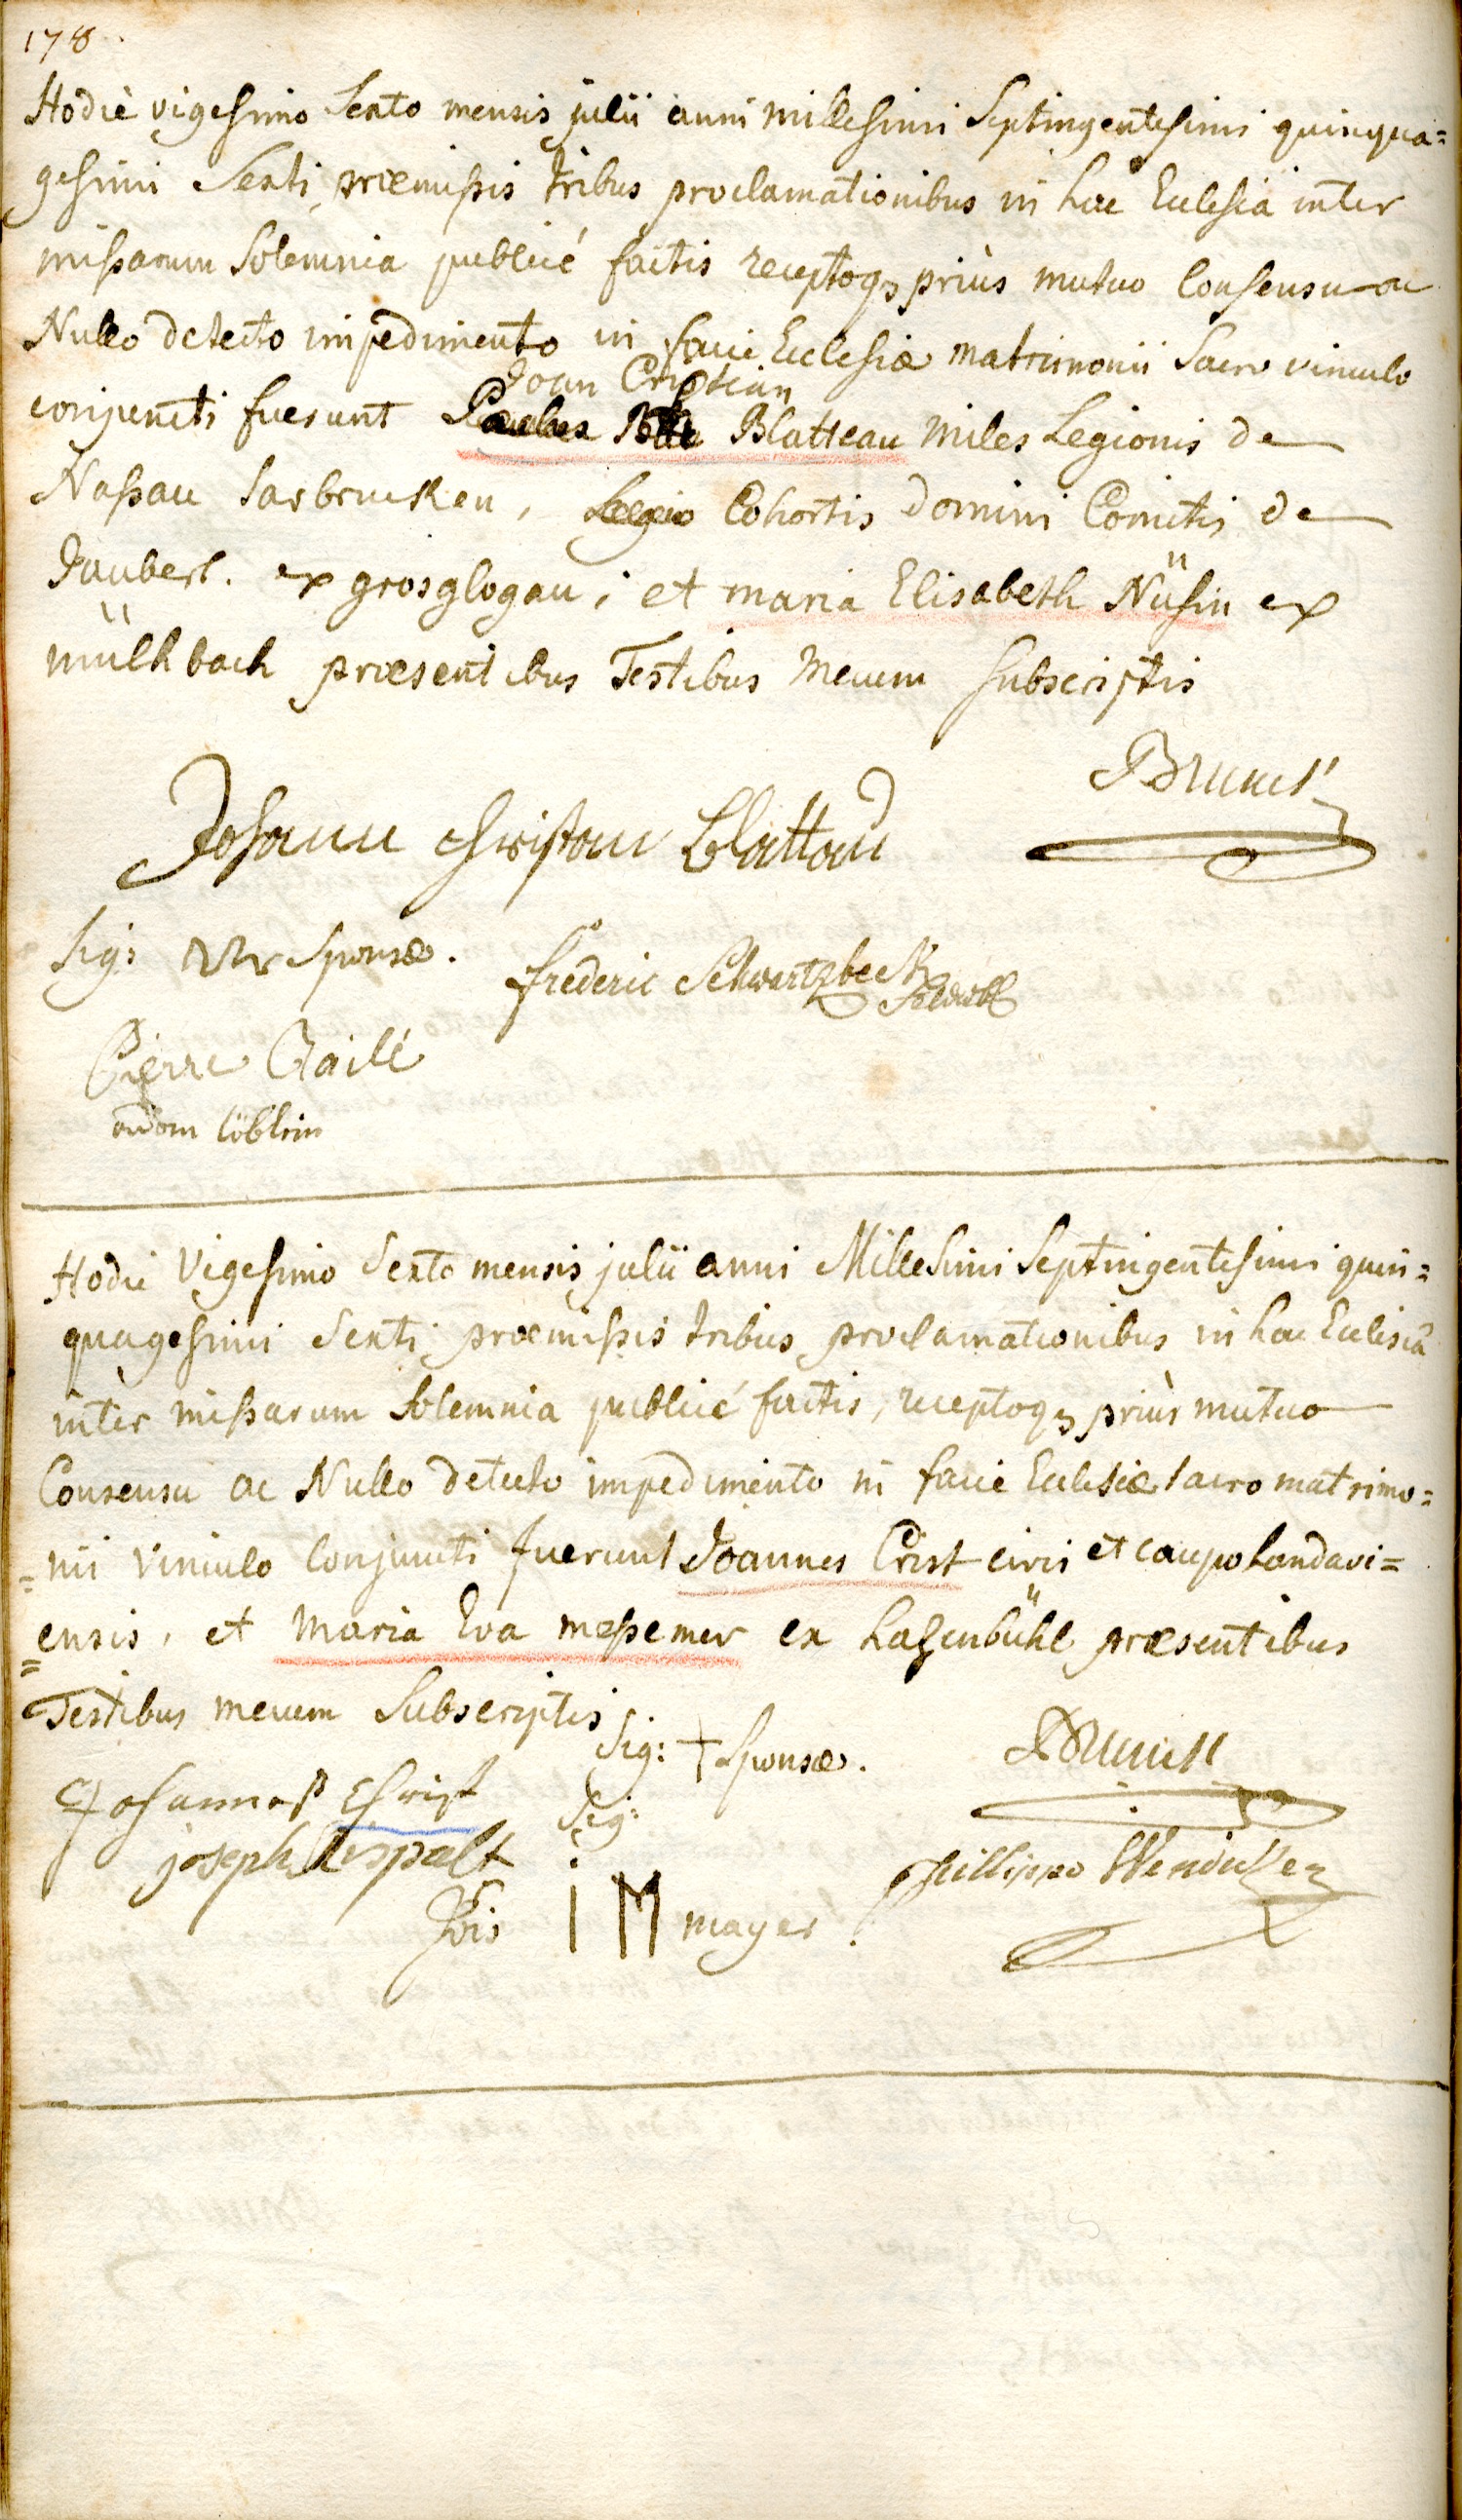 178.
Hodiè vigesimo Sexto mensis julii anni millesimi Septingentesimi quinqua=
gesimi Sexti, præmissis tribus proclamationibus in hac Ecclesiâ inter
missarum Solemnia publicé factis receptoq3 priùs mutuo Consensu ac
Nullo detecto impedimento in facie Ecclesiæ matrimonii Sacro vinculo
Joan Cristian
conjuncti fuerunt Blatteau miles Legionis de
Nassau Sarbrucken, Cohortis Domini Comitis de
Jaubert. ex grosglogau; et maria Elisabeth Nüsin ex
müllbach præsentibus Testibus mecum Subscriptis
Brunck
Johann Christian Blattau
Sig: Sponsæ.
frederic Schwartzbeck
Pierre
adam
Hodie Vigesimo Sexto mensis julii anni Millesimi Septingentesimi quin=
quagesimi Sexti, præmissis tribus proclamationibus in hac Ecclesiâ
inter missarum Solemnia publicé factis, receptoq3 priùs mutuo
Consensu ac Nullo detecto impedimento in facie Ecclesiæ sacro matrimo=
=nii vinculo conjuncti fuerunt Joannes Crist civis et caupo Landavi=
=ensis, et Maria Eva messemer ex hazenbühl præsentibus
Testibus mecum Subscriptis
Sig: + Sponsæ.
Brunck
Johannes Christ
Sig:
joseph
phillippe
Jois I M mayer